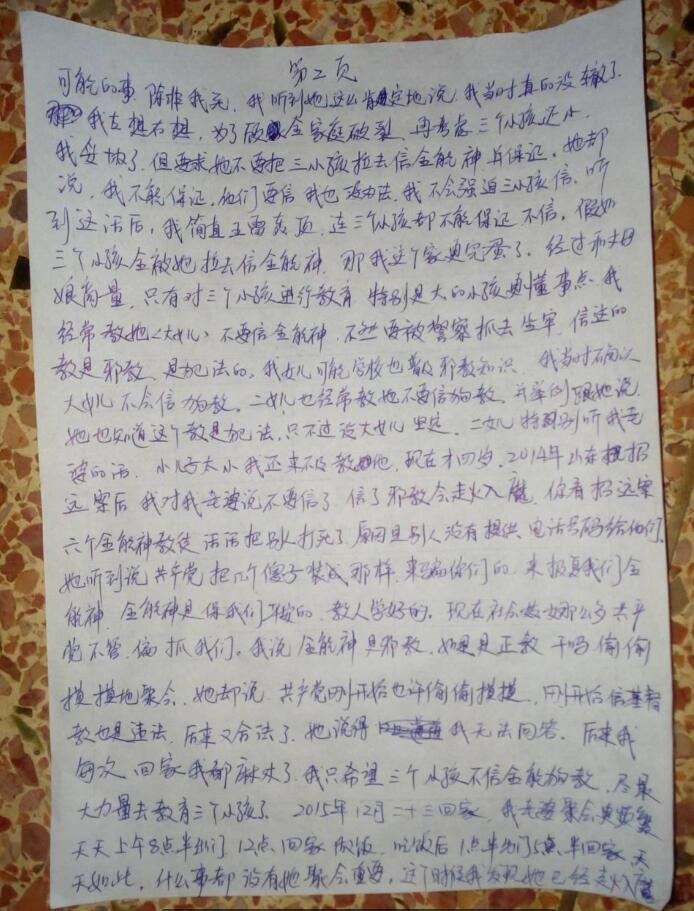 第二页
可能的事 除非我死. 我听到她这么肯定地说. 我当时真的没辙了.
我左想右想, 为了顾全家庭破裂 再考虑三个小孩还小
我妥协了. 但要求她不要把三小孩拉去信全能神 并保证. 她却
说, 我不能保证, 他们要信我也没办法. 我不会强迫三小孩信. 听
到这话后, 我简直五雷轰顶. 连三个小孩都不能保证不信, 假如
三个小孩全被她拉去信全能神. 那我这个家更完蛋了. 经过和丈母
娘商量, 只有对三个小孩进行教育 特别是大的小孩更懂事点. 我
经常教她<大女儿> 不要信全能神, 不然要被警察抓去坐牢. 信这的
教是邪教, 是犯法的. 我女儿可能学校也普及邪教知识. 我当时确认
大女儿不会信狗教. 二女儿也经常教她不要信狗教. 并举例跟她说.
她也知道这个教是犯法, 只不过没大女儿坚定. 二女儿特别听我老
婆的话. 小儿子太小我还来不及教他, 现在才四岁. 2014年山东招
远案后 我对我老婆说不要信了. 信了邪教会走火入魔, 你看招远案
六个全能神教徒 活活把别人打死了 原因是别人没有提供 电话号码给他们.
她听到说共产党把几个傻子装成那样, 来骗你们的. 来报复我们全
能神. 全能神是保我们平安的. 教人学好的. 现在社会妓女那么多共产
党不管 偏抓我们. 我说全能神是邪教, 如果是正教 干吗偷偷
摸摸地聚会, 她却说 共产党刚开始也许偷偷摸摸, 刚开始信基督
教也是违法, 后来又合法了. 她说得 我无法回答. 后来我
每次回家我都麻木了. 我只希望三个小孩不信全能狗教, 尽最
大力量去教育三个小孩了. 2015年12月二十三回家, 我老婆聚会更频繁
天天上午8点半出门 12点回家做饭, 吃饭后1点半出门5点半回家 天
天如此, 什么事都没有她聚会重要, 这个时候我发现她已经走火入魔